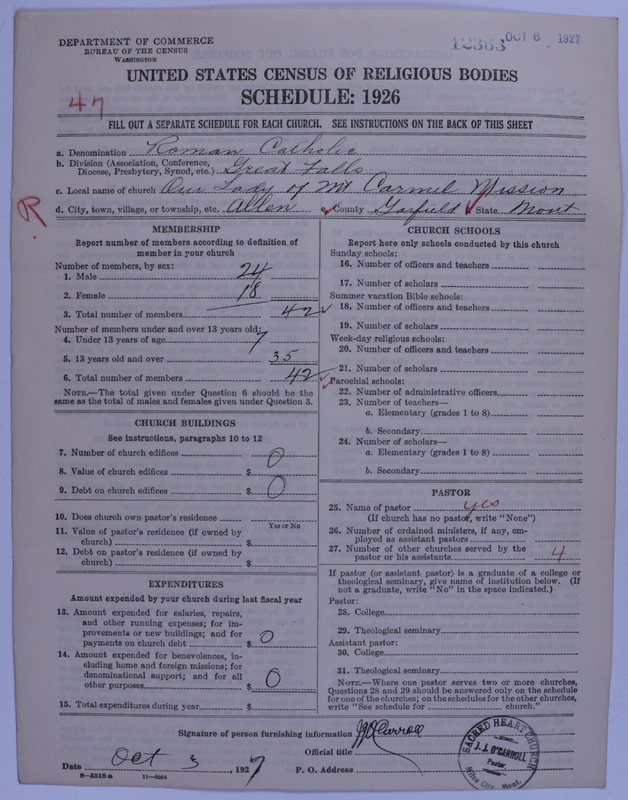 DEPARTMENT OF COMMERCE
BUREAU OF THE CENSUS
WASHINGTON
12363 OCT 6 1927
UNITED STATES CENSUS OF RELIGIOUS BODIES
SCHEDULE: 1926
47
FILL OUT A SEPARATE SCHEDULE FOR EACH CHURCH. SEE INSTRUCTIONS ON THE BACK OF THIS SHEET
a. Denomination Roman Catholic
b. Division (Association, Conference,
Diocese, Presbytery, Synod, etc.) Great Falls
c. Local name of church Our Lady of Mt Carmel Mission
d. City, town, village, or township, etc. Allen e. County Garfield State Mont
R.
MEMBERSHIP
Report number of members according to definition of
member in your church
Number of members, by sex:
1. Male 24
2. Female 18
3. Total number of members 42
Number of members under and over 13 years old:
4. Under 13 years of age 7
5. 13 years old and over 35
6. Total number of members 42
NOTE.—The total given under Question 6 should be
same as the total of males and females given under Question 3.
CHURCH BUILDINGS
See instructions, paragraphs 10 to 12
7. Number of church edifices 0
8. Value of church edifices $
9. Debt on church edifices $ 0
10. Does church own pastor's residence
Yes or No
11. Value of pastor's residence (if owned by
church) $
12. Debt on pastor's residence (if owned by
church) $
EXPENDITURES
Amount expended by your church during last fiscal year
13. Amount expended for salaries, repairs,
and other running expenses; for im-
provements or new buildings; and for
payments on church debt $ 0
14. Amount expended for benevolences, in-
cluding home and foreign missions; for
denominational support; and for all
other purposes $ 0
15. Total expenditures during year $
CHURCH SCHOOLS
Report here only schools conducted by this church
Sunday schools:
16. Number of officers and teachers
17. Number of scholars
Summer vacation Bible schools:
18. Number of officers and teachers
19. Number of scholars
Week-day religious schools:
20. Number of officers and teachers
21. Number of scholars
Parochial schools:
22. Number of administrative officers
23. Number of teachers—
a. Elementary (grades 1 to 8)
b. Secondary
24. Number of scholars—
a. Elementary (grades 1 to 8)
b. Secondary
PASTOR
25. Name of pastor yes
(If church has no pastor, write "None")
26. Number of ordained ministers, if any, em-
ployed as assistant pastors
27. Number of other churches served by the
pastor or his assistants 4
If pastor (or assistant pastor) is a graduate of a college or
theological seminary, give name of institution below. (If
not a graduate, write "No" in the space indicated.)
Pastor:
28. College
29. Theological seminary
Assistant pastor:
30. College
31. Theological seminary
NOTE.—Where one pastor serves two or more churches,
Questions 28 and 29 should be answered only on the schedule
for one of the churches; on the schedules for the other churches,
write "See schedule for church."
Signature of person furnishing information JJ O'Carroll
Official title
Date Oct 3, 1927 P. O. Address
8-5518a 11-9064
SACRED HEART CHURCH
J. J. O'CARROLL
Pastor
Miles City, Mont.